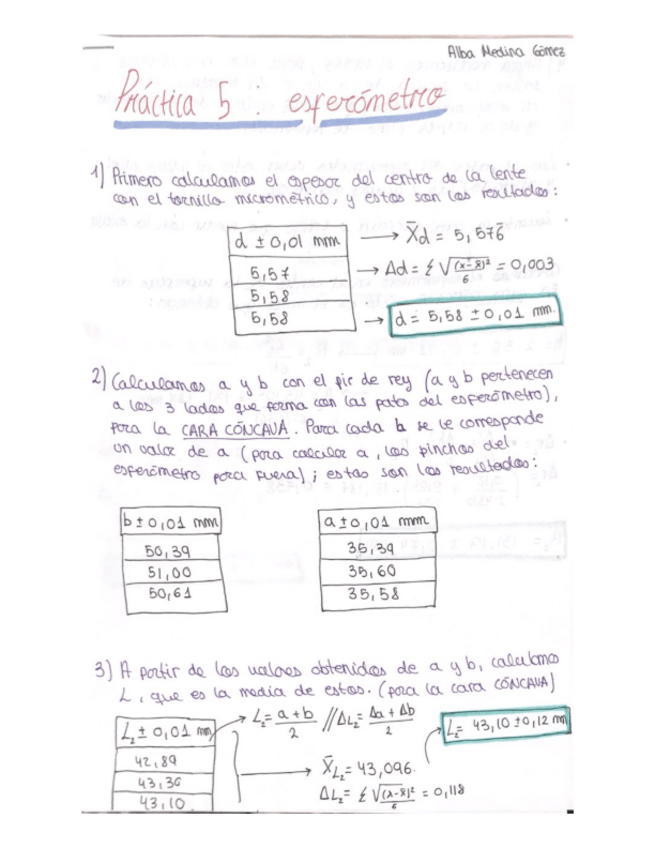 Alba Medina Gómez
Práctica 5 esferómetro
1) Primero calculamos el espesor del centro de la lente
con el tornillo micrométrico, y estos son los resultados:
d ± 0,01 mm
5,57
5,58
5,58
→ X̄d = 5,576
→ Δd = ∑ √(x-x̄)²/6 = 0,003
→ d = 5,58 ± 0,01 mm.
2) Calculamos a y b con el pir de rey (a y b pertenecen
a los 3 lados que forma con las pata del esferómetro),
para la CARA CÓNCAVA. Para cada b se le corresponde
un valor de a (para calcular a, los pinchos del
esferómetro para fuera); estos son los resultados:
b ± 0,01 mm
50,39
51,00
50,61
a ± 0,01 mm
35,39
35,60
35,58
3) A partir de los valores obtenidos de a y b, calculamos
L, que es la media de estos. (para la cara CÓNCAVA)
L₂ ± 0,01 mm
42,89
43,30
43,10
→ L₂ = a + b / 2 // ΔL₂ = Δa + Δb / 2
→ X̄L₂ = 43,096.
ΔL₂ = ∑ √(x-x̄)²/6 = 0,118
L₂ = 43,10 ± 0,12 mm